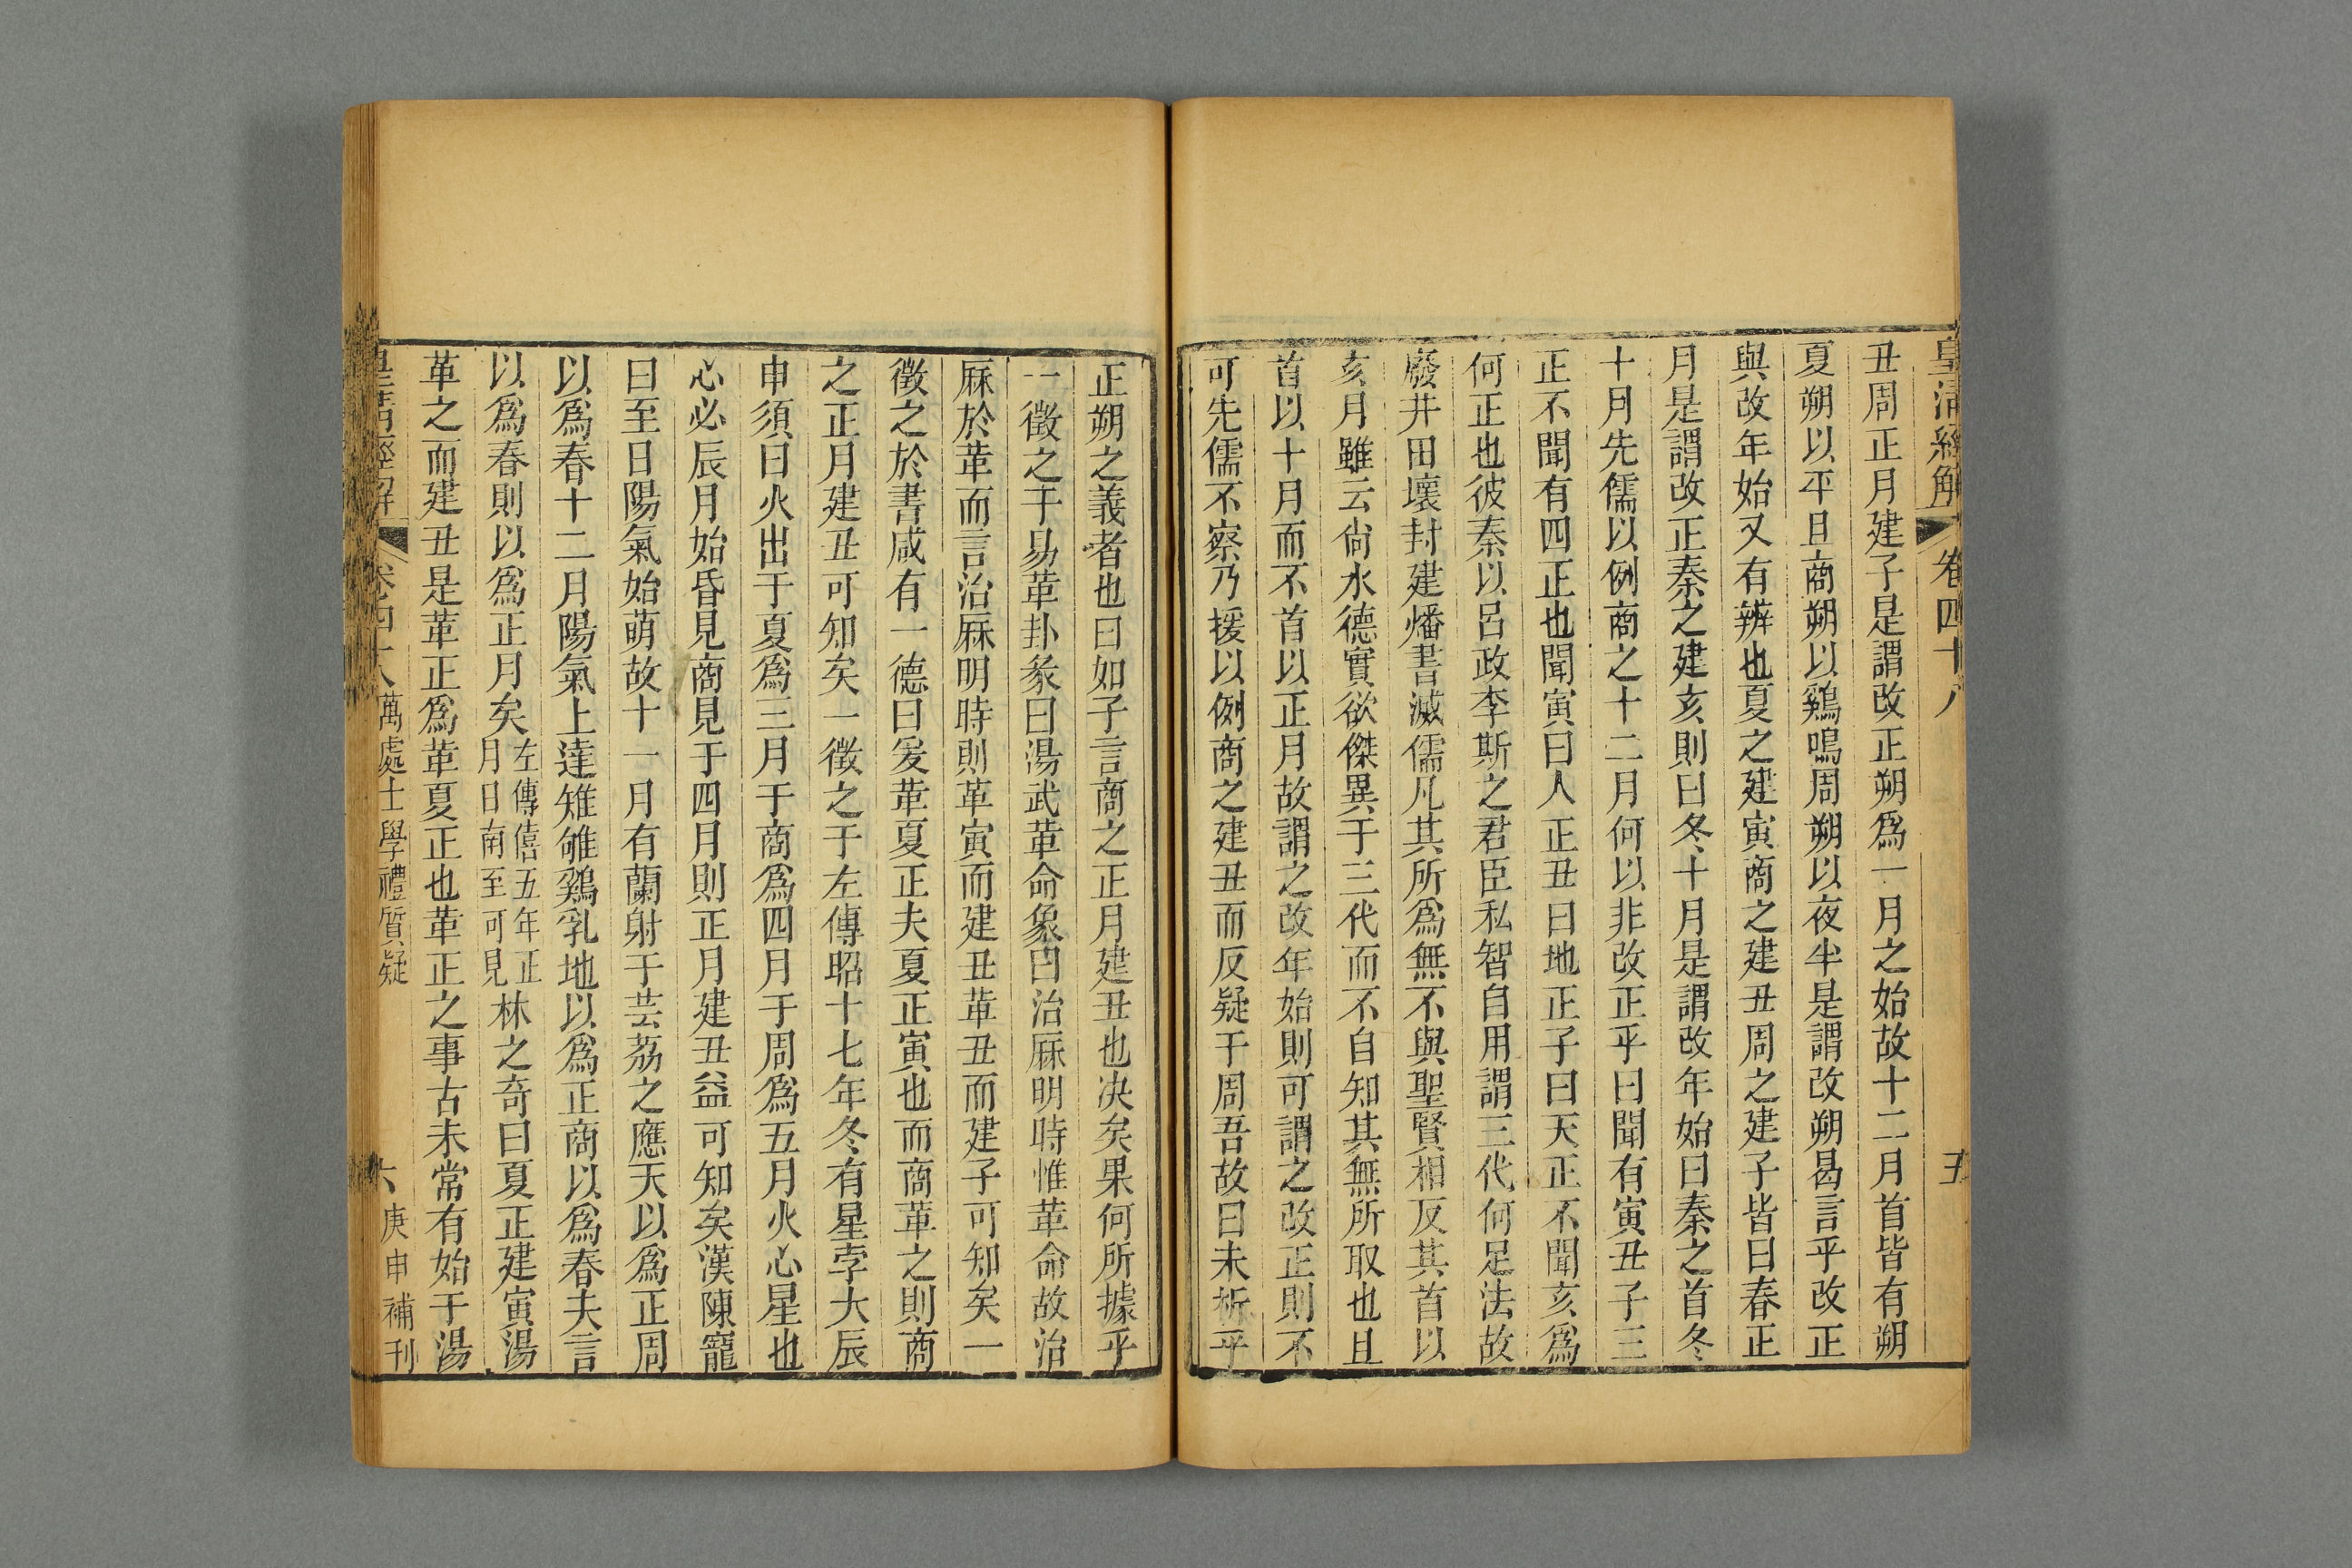 皇清經解 卷四十八 五
丑周正月建子是謂改正朔爲一月之始故十二月首皆有朔
夏朔以平旦商朔以鷄鳴周朔以夜半是謂改朔曷言乎改正
與改年始又有辨也夏之建寅商之建丑周之建子皆曰春正
月是謂改正秦之建亥則曰冬十月是謂改年始曰秦之首冬
十月先儒以例商之十二月何以非改正乎曰聞有寅丑子三
正不聞有四正也聞寅曰人正丑曰地正子曰天正不聞亥爲
何正也彼秦以呂政李斯之君臣私智自用謂三代何足法故
廢井田壞封建燔書滅儒凡其所爲無不與聖賢相反其首以
亥月雖云尙水德實欲傑異于三代而不自知其無所取也且
首以十月而不首以正月故謂之改年始則可謂之改正則不
可先儒不察乃援以例商之建丑而反疑于周吾故曰未析乎
正朔之義者也曰如子言商之正月建丑也决矣果何所據乎
一徵之于易革卦彖曰湯武革命象曰治厤明時惟革命故治
厤於革而言治厤明時則革寅而建丑革丑而建子可知矣一
徵之於書咸有一德曰爰革夏正夫夏正寅也而商革之則商
之正月建丑可知矣一徵之于左傳昭十七年冬有星孛大辰
申須曰火出于夏爲三月于商爲四月于周爲五月火心星也
心必辰月始昏見商見于四月則正月建丑益可知矣漢陳寵
曰至日陽氣始萌故十一月有蘭射于芸荔之應天以爲正周
以爲春十二月陽氣上達雉雊鷄乳地以爲正商以爲春夫言
以爲春則以爲正月矣左傳僖五年正月日南至可見林之奇曰夏正建寅湯
革之而建丑是革正爲革夏正也革正之事古未常有始于湯
皇清經解 卷四十八 萬處士學禮質疑 六 庚申補刊